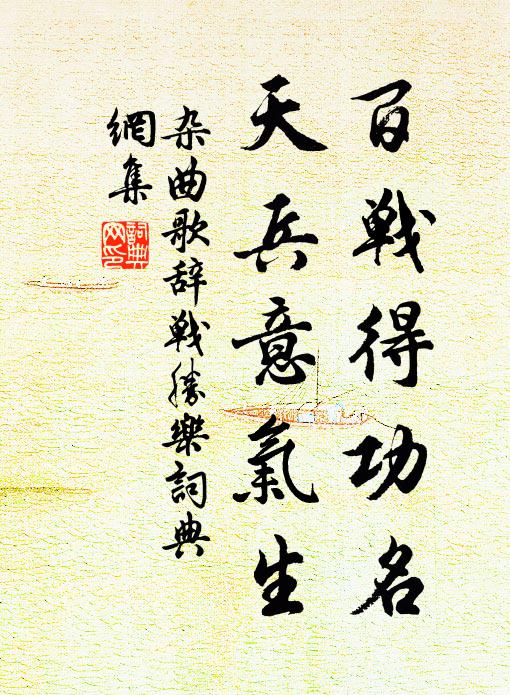 百戰得功名
天兵意氣生
杂曲歌辞戰勝樂詞典
網集
詞典
网印